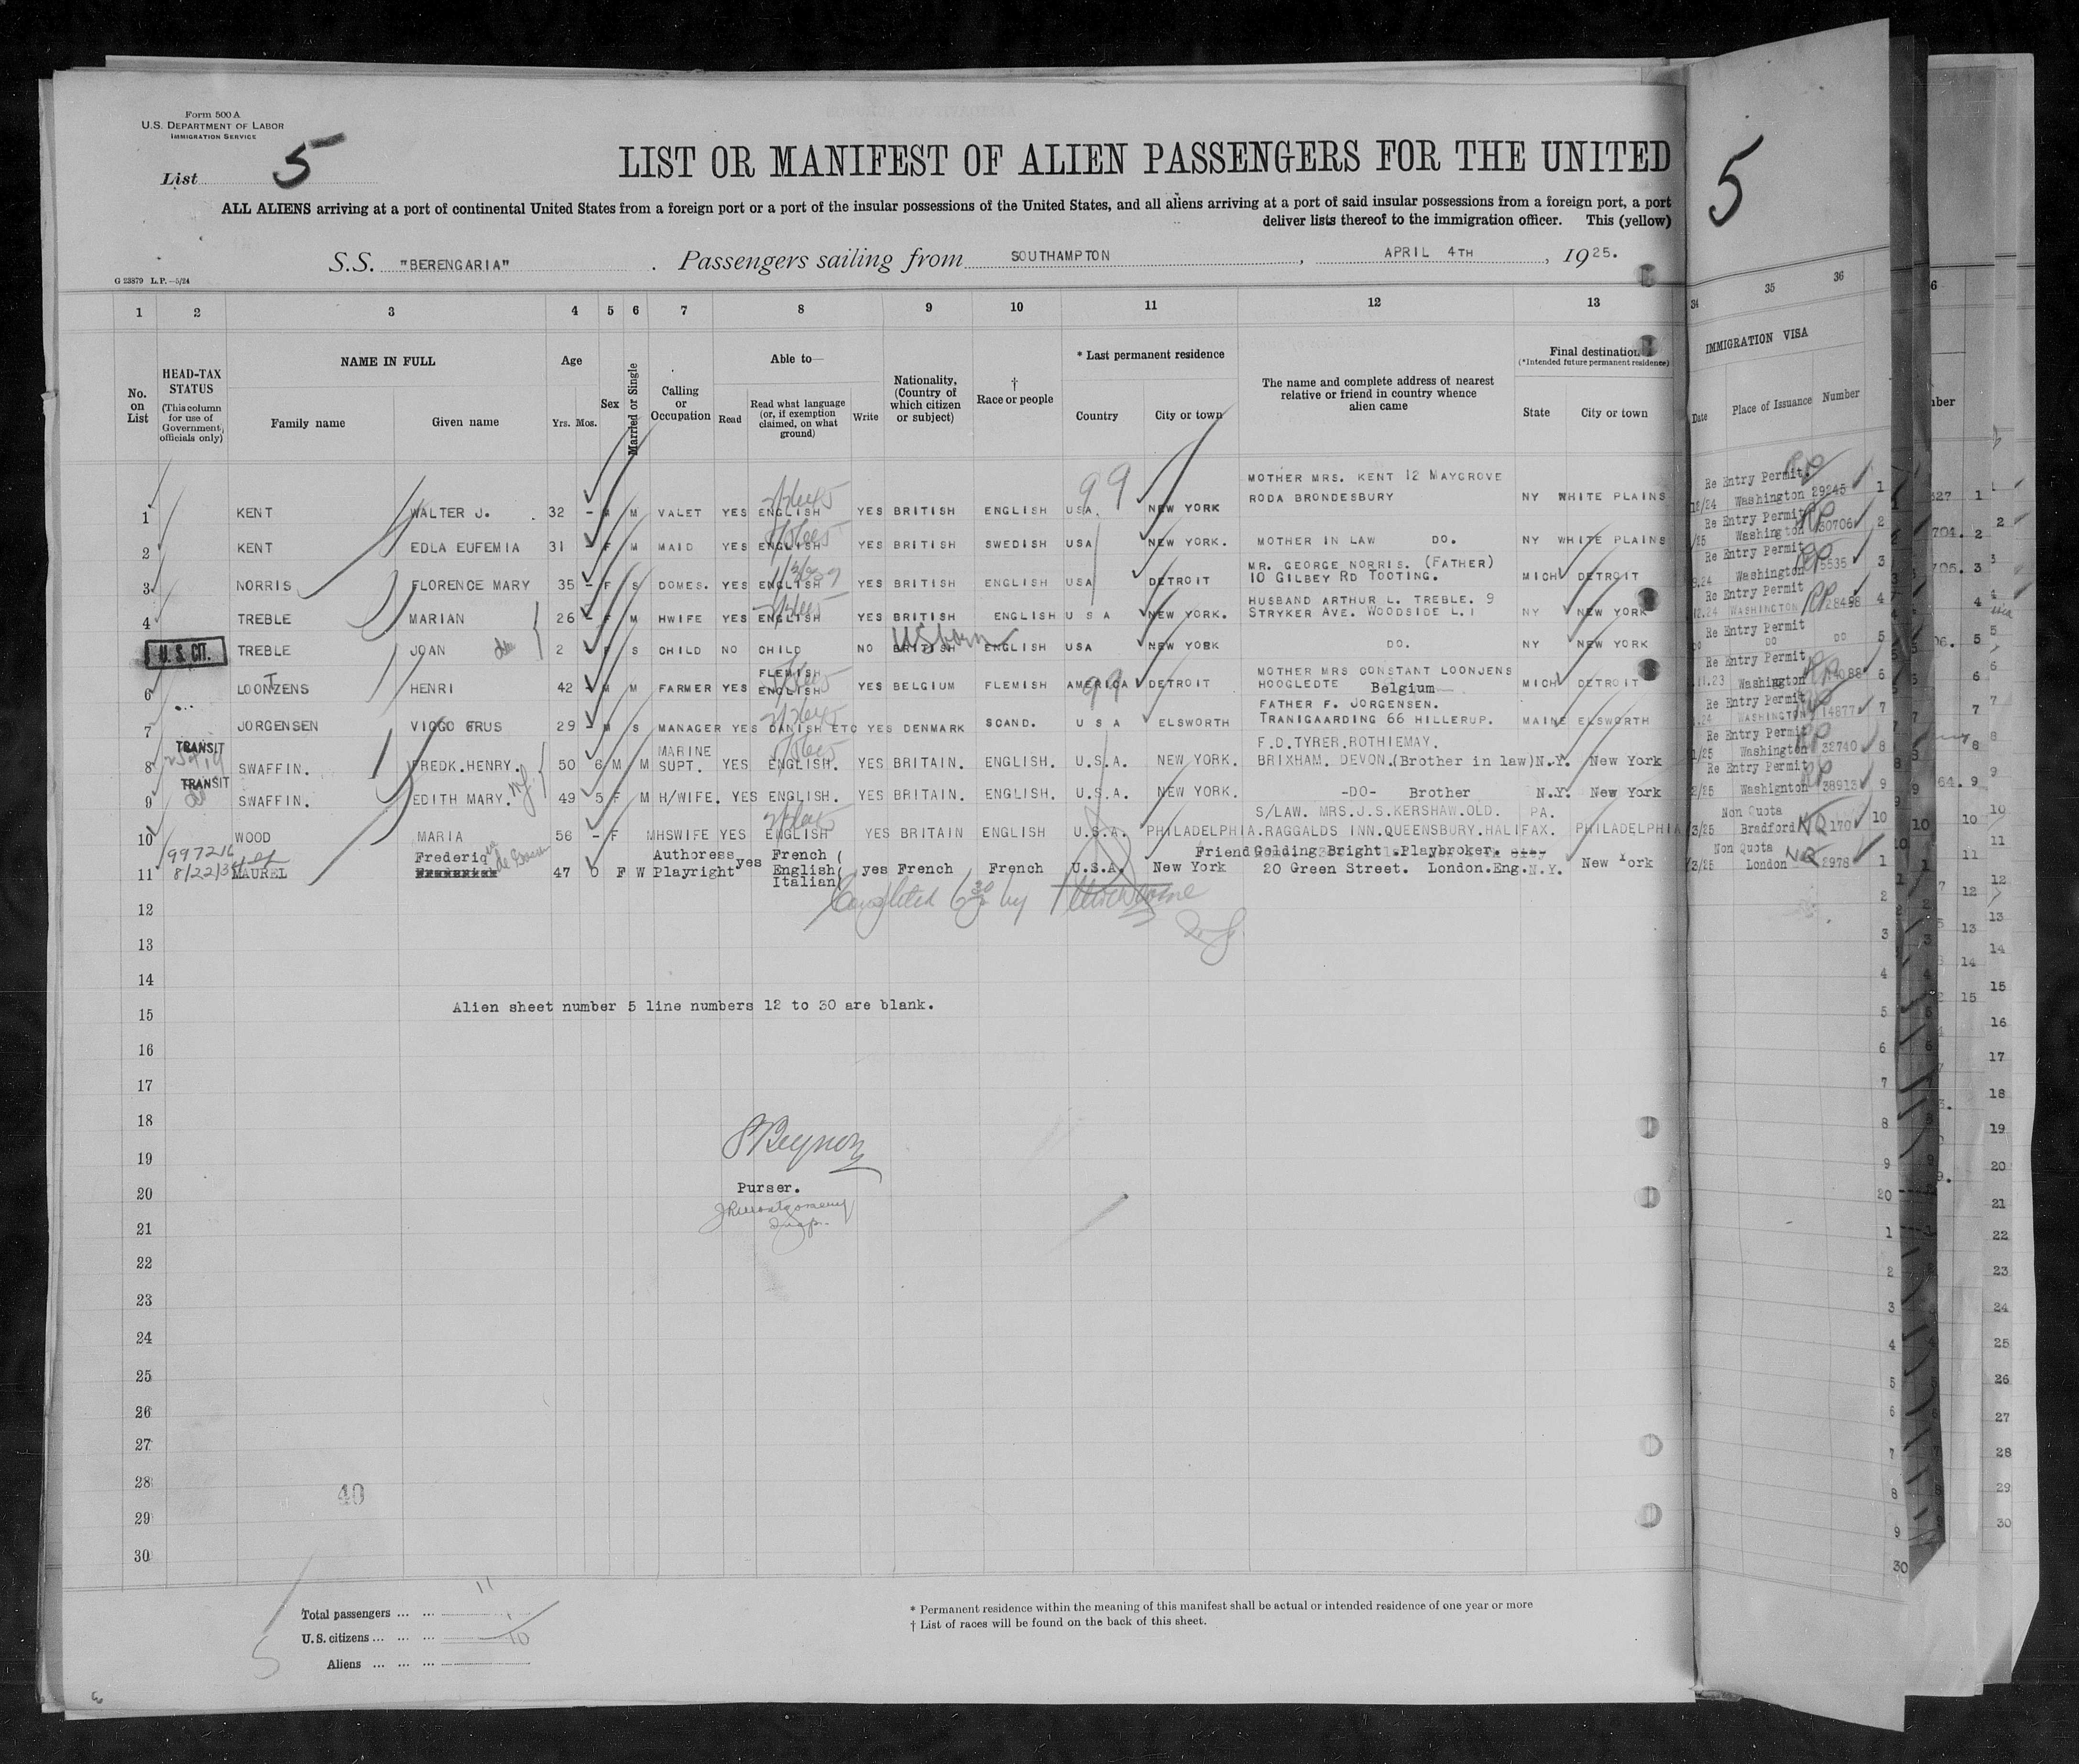 Form 500 A
U.S. DEPARTMENT OF LABOR
IMMIGRATION SERVICE
List 5
LIST OR MANIFEST OF ALIEN PASSENGERS FOR THE UNITED
ALL ALIENS arriving at a port of continental United States from a foreign port or a port of the insular possessions of the United States, and all aliens arriving at a port of said insular possessions from a foreign port, a port
deliver lists thereof to the immigration officer. This (yellow)
S.S. "BERENGARIA" . Passengers sailing from SOUTHAMPTON , APRIL 4TH , 1925.
G 23879 L.P.—5/24
5
1 2 3 4 5 6 7 8 9 10 11 12 13 34 35 36
No. on List
HEAD-TAX STATUS (This column for use of Government officials only)
NAME IN FULL
Family name Given name
Age
Yrs. Mos.
Sex
Married or Single
Calling or Occupation
Able to—
Read Read what language (or, if exemption claimed, on what ground) Write
Nationality, (Country of which citizen or subject)
† Race or people
* Last permanent residence
Country City or town
The name and complete address of nearest relative or friend in country whence alien came
Final destination
(*Intended future permanent residence)
State City or town
IMMIGRATION VISA
Date Place of Issuance Number
MOTHER MRS. KENT 12 MAYGROVE Re Entry Permit.
1 KENT WALTER J. 32 - M M VALET YES ENGLISH YES BRITISH ENGLISH USA. NEW YORK RODA BRONDESBURY NY WHITE PLAINS Washington 29245 1
Re Entry Permit
2 KENT EDLA EUFEMIA 31 - F M MAID YES ENGLISH YES BRITISH SWEDISH USA NEW YORK. MOTHER IN LAW DO. NY WHITE PLAINS Washington 30706 2
MR. GEORGE NORRIS. (FATHER) Re Entry Permit
3 NORRIS FLORENCE MARY 35 - F S DOMES. YES ENGLISH YES BRITISH ENGLISH USA DETROIT 10 GILBEY RD TOOTING. MICH DETROIT Washington 5535 3
HUSBAND ARTHUR L. TREBLE. 9 Re Entry Permit
4 TREBLE MARIAN 26 - F M HWIFE YES ENGLISH YES BRITISH ENGLISH U S A NEW YORK. STRYKER AVE. WOODSIDE L.I NY NEW YORK WASHINGTON 28498 4
Re Entry Permit
U.S. CIT. TREBLE JOAN 2 F S CHILD NO CHILD NO BRITISH US born ENGLISH USA NEW YORK DO. NY NEW YORK DO DO 5
FLEMISH MOTHER MRS CONSTANT LOONJENS Re Entry Permit
6 LOONTZENS HENRI 42 - M M FARMER YES ENGLISH YES BELGIUM FLEMISH AMERICA DETROIT HOOGLEDTE Belgium MICH DETROIT Washington 6
FATHER F. JORGENSEN. Re Entry Permit
7 JORGENSEN VIGGO GRUS 29 - M S MANAGER YES DANISH ETC YES DENMARK SCAND. U S A ELSWORTH TRANIGAARDING 66 HILLERUP. MAINE ELSWORTH WASHINGTON 14877 7
TRANSIT MARINE F.D.TYRER.ROTHIEMAY. Re Entry Permit
8 SWAFFIN. FREDK.HENRY. 50 6 M M SUPT. YES ENGLISH. YES BRITAIN. ENGLISH. U.S.A. NEW YORK. BRIXHAM. DEVON.(Brother in law) N.Y. New York Washington 32740 8
TRANSIT Re Entry Permit
9 SWAFFIN. EDITH MARY. 49 5 F M H/WIFE. YES ENGLISH. YES BRITAIN. ENGLISH. U.S.A. NEW YORK. -DO- Brother N.Y. New York Washignton 38913 9
S/LAW. MRS.J.S.KERSHAW.OLD. PA. Non Quota
10 WOOD MARIA 56 - F M HSWIFE YES ENGLISH YES BRITAIN ENGLISH U.S.A. PHILADELPHIA. RAGGALDS INN.QUEENSBURY.HALIFAX. PHILADELPHIA 3/25 Bradford NQ 170 10
997216 Frederiq Authoress French ( Friend Golding Bright .Playbroker. Non Quota
11 8/22/3 MAUREL 47 F W Playright yes English( yes French French U.S.A. New York 20 Green Street. London.Eng. N.Y. New York 3/25 London NQ 2978
Italian(
12
13
14
Alien sheet number 5 line numbers 12 to 30 are blank.
15
16
17
18
19
Purser.
20
21
22
23
24
25
26
27
28
40
29
30
Total passengers ... ... 11
U.S. citizens ... ... ... 1
Aliens ... ... ... 10
* Permanent residence within the meaning of this manifest shall be actual or intended residence of one year or more
† List of races will be found on the back of this sheet.